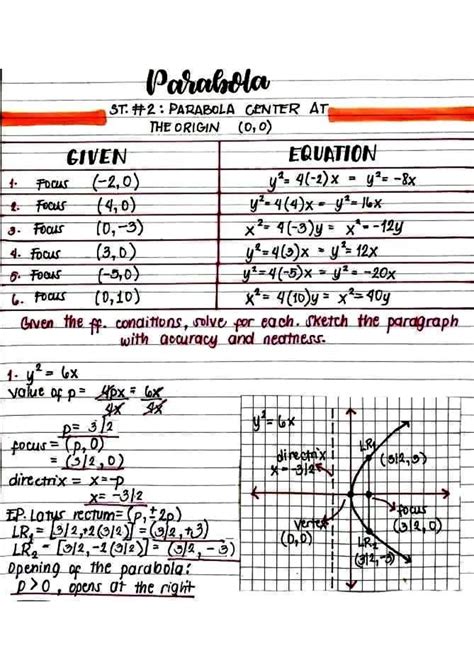 Parabola
ST. #2: PARABOLA CENTER AT
THE ORIGIN (0,0)
GIVEN EQUATION
1. Focus (-2,0) y²= 4(-2)x = y²= -8x
2. Focus (4,0) y²= 4(4)x = y²= 16x
3. Focus (0,-3) x²= 4(-3)y = x²= -12y
4. Focus (3,0) y²= 4(3)x = y²= 12x
5. Focus (-5,0) y²= 4(-5)x = y²= -20x
6. Focus (0,10) x²= 4(10)y = x²= 40y
Given the ff. conditions, solve for each. Sketch the paragraph
with accuracy and neatness.
1. y² = 6x
value of p = 4px = 6x
4x 4x
p = 3/2
focus = (p, 0)
= (3/2, 0)
directrix = x = -p
x = -3/2
EP. Latus rectum = (p, ±2p)
LR₁ = [3/2, +2(3/2)] = (3/2, +3)
LR₂ = [3/2, -2(3/2)] = (3/2, -3)
Opening of the parabola:
p > 0, opens at the right
y² = 6x
directrix
x = -3/2
LR₁
(3/2, 3)
vertex
(0,0)
focus
(3/2, 0)
LR₂
(3/2, -3)